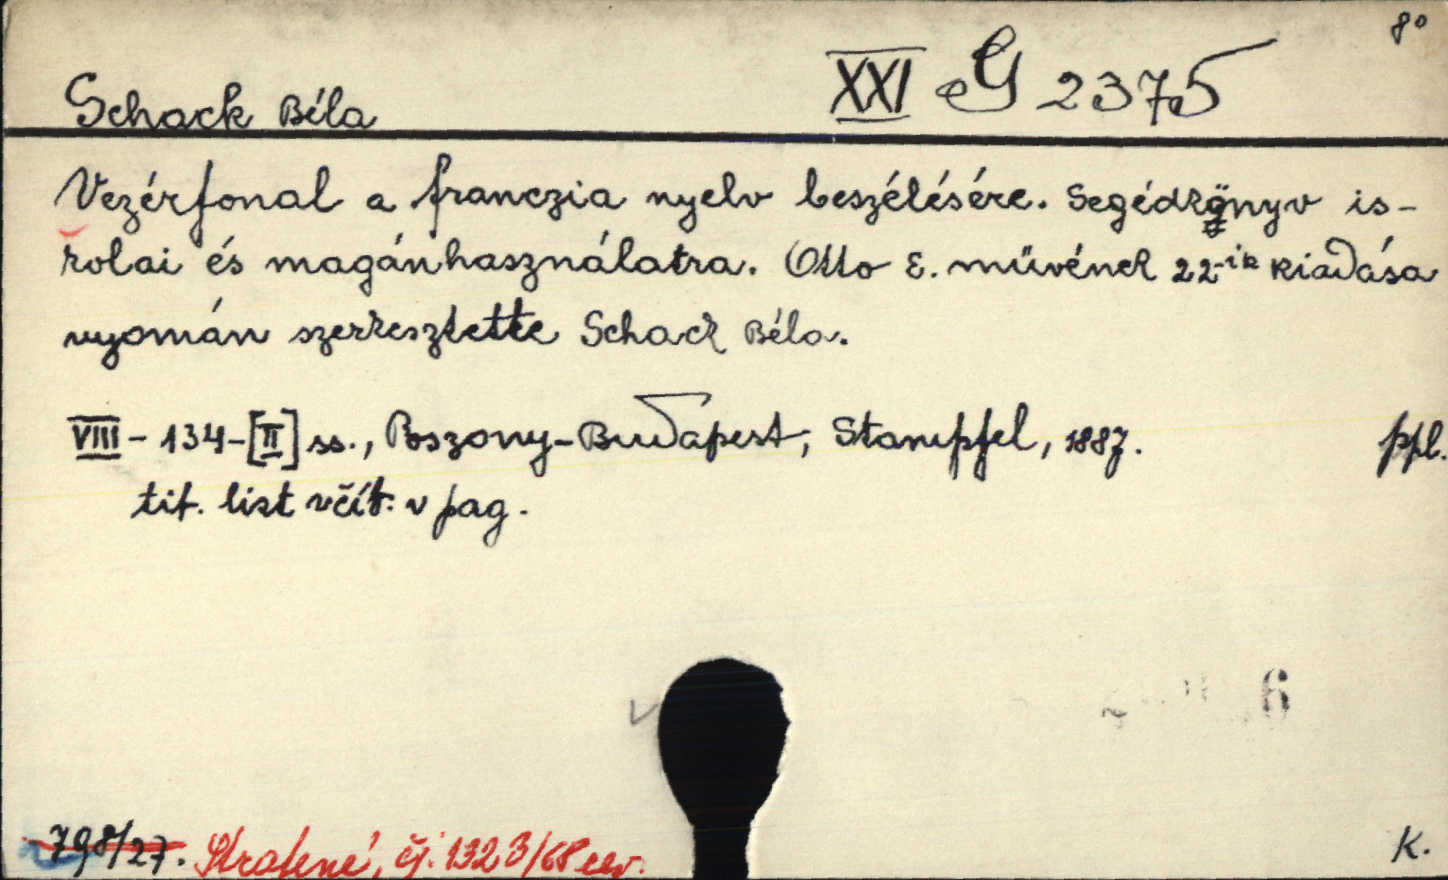 8°
XXI G 2375
Schack Béla
Vezérfonal a franczia nyelv beszélésére. Segédkönyv is-
kolai és magánhasználatra. Otto E. művének 22-ik kiadása
nyomán szerkesztette Schack Béla.
VIII - 134 - [II] ss., Poszony-Budapest, Stampfel, 1887. ppl.
tit. list včít. v pag.
6
798/27. Stratené, čj. 1323/68 rev.
K.